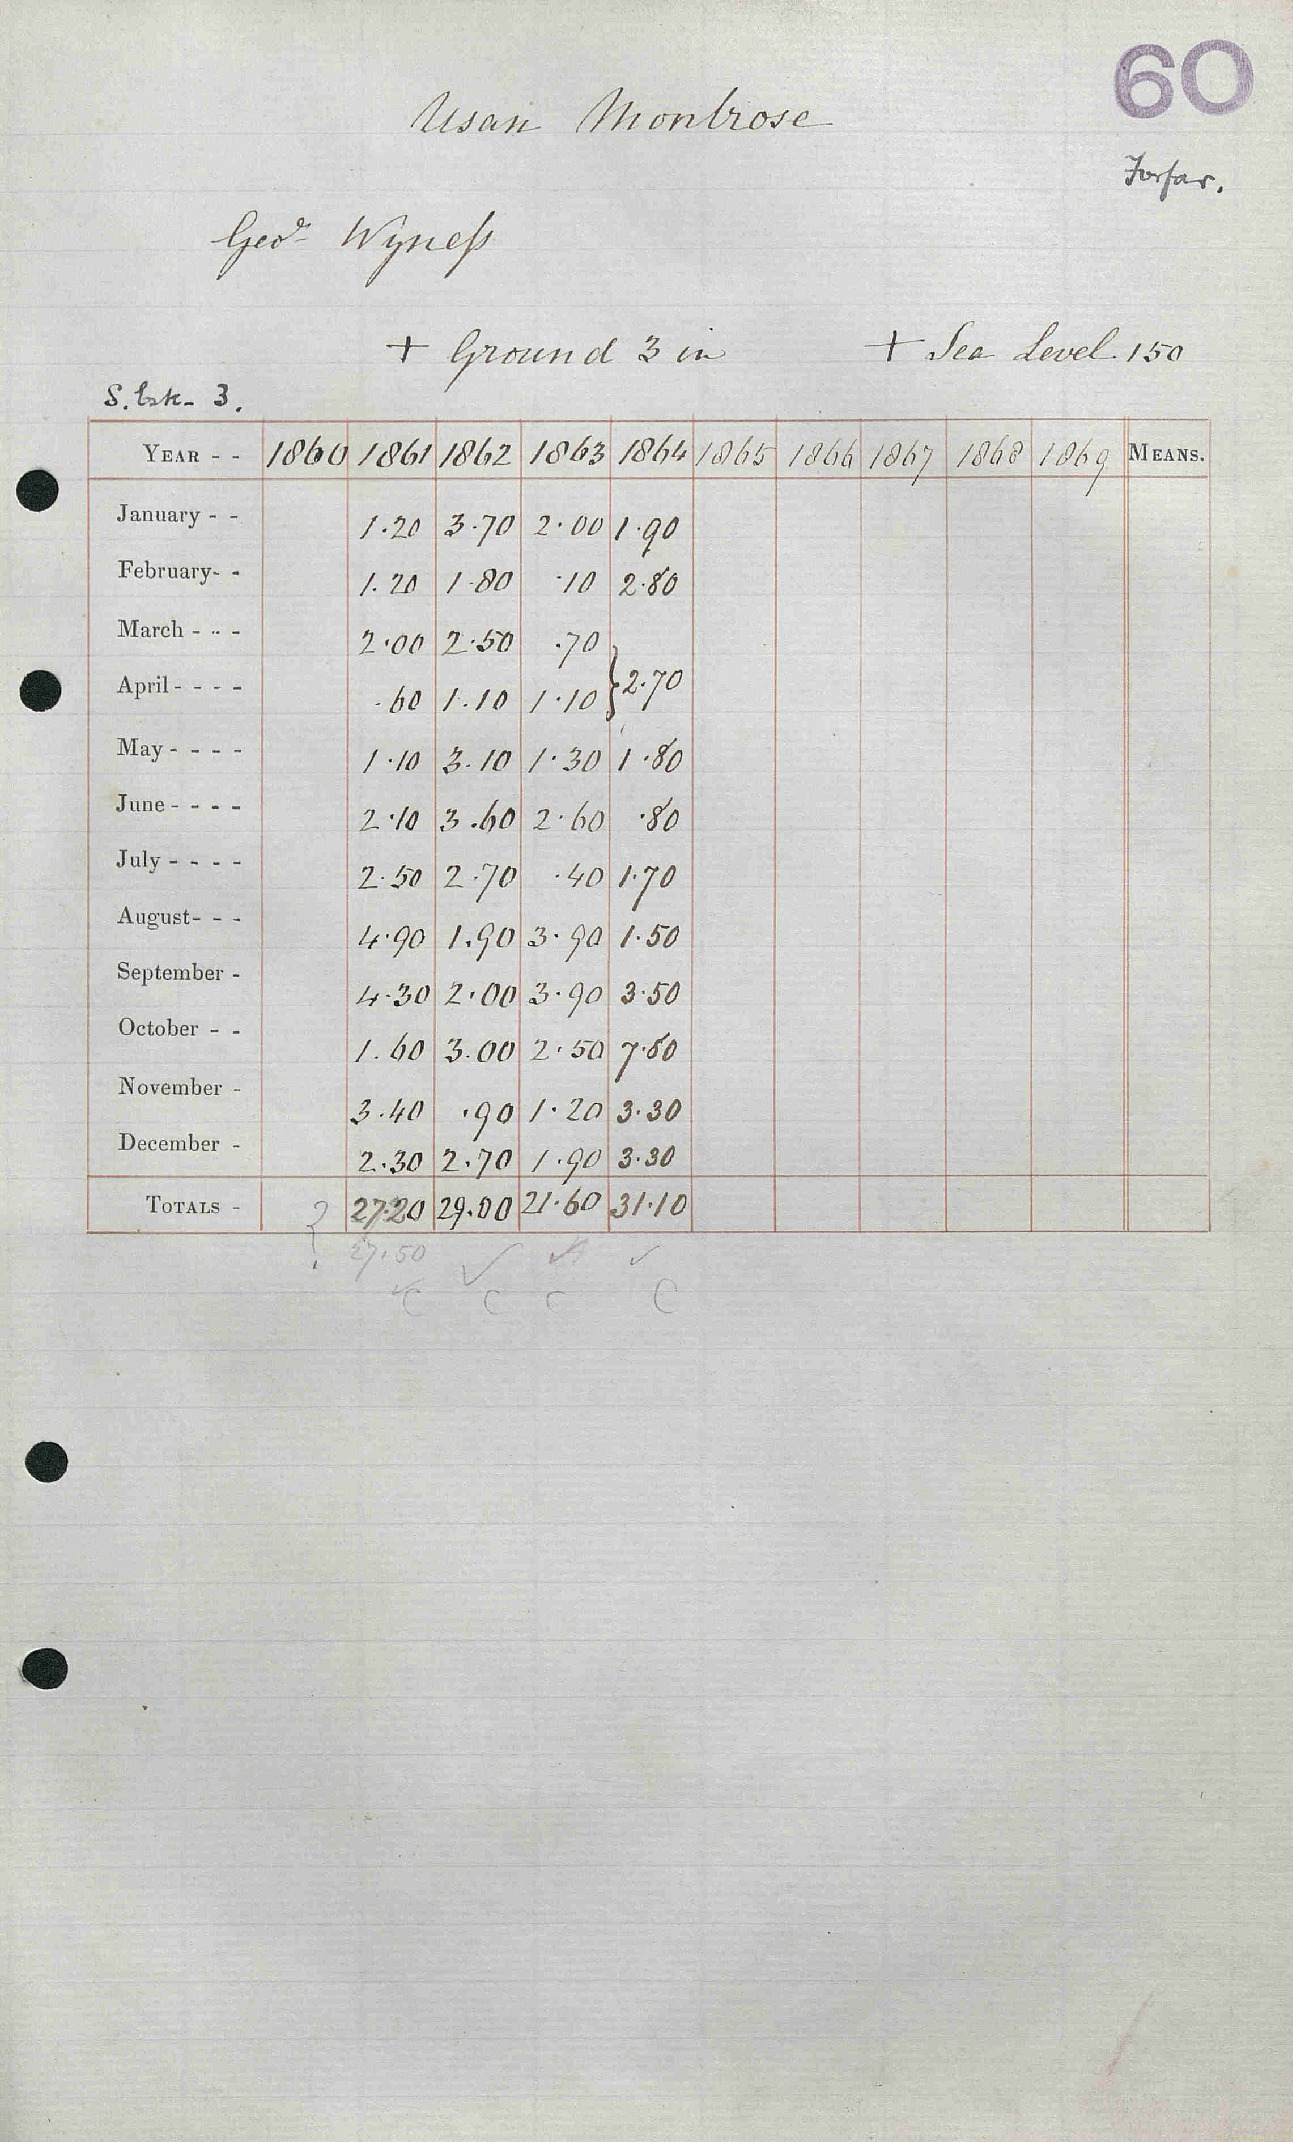 60
Usan Montrose
Forfar.
Geo. Wyness
+ Ground 3 in + Sea Level. 150
S. Esk - 3.
YEAR - - 1860 1861 1862 1863 1864 1865 1866 1867 1868 1869 MEANS.
January - - 1.20 3.70 2.00 1.90
February- - 1.20 1.80 .10 2.80
March - - - 2.00 2.50 .70
April - - - - .60 1.10 1.10 } 2.70
May - - - - 1.10 3.10 1.30 1.80
June - - - - 2.10 3.60 2.60 .80
July - - - - 2.50 2.70 .40 1.70
August- - - 4.90 1.90 3.90 1.50
September - 4.30 2.00 3.90 3.50
October - - 1.60 3.00 2.50 7.80
November - 3.40 .90 1.20 3.30
December - 2.30 2.70 1.90 3.30
TOTALS - 27.20 29.00 21.60 31.10
? 27.50 ✓ ✓ ✓
✓C C C C